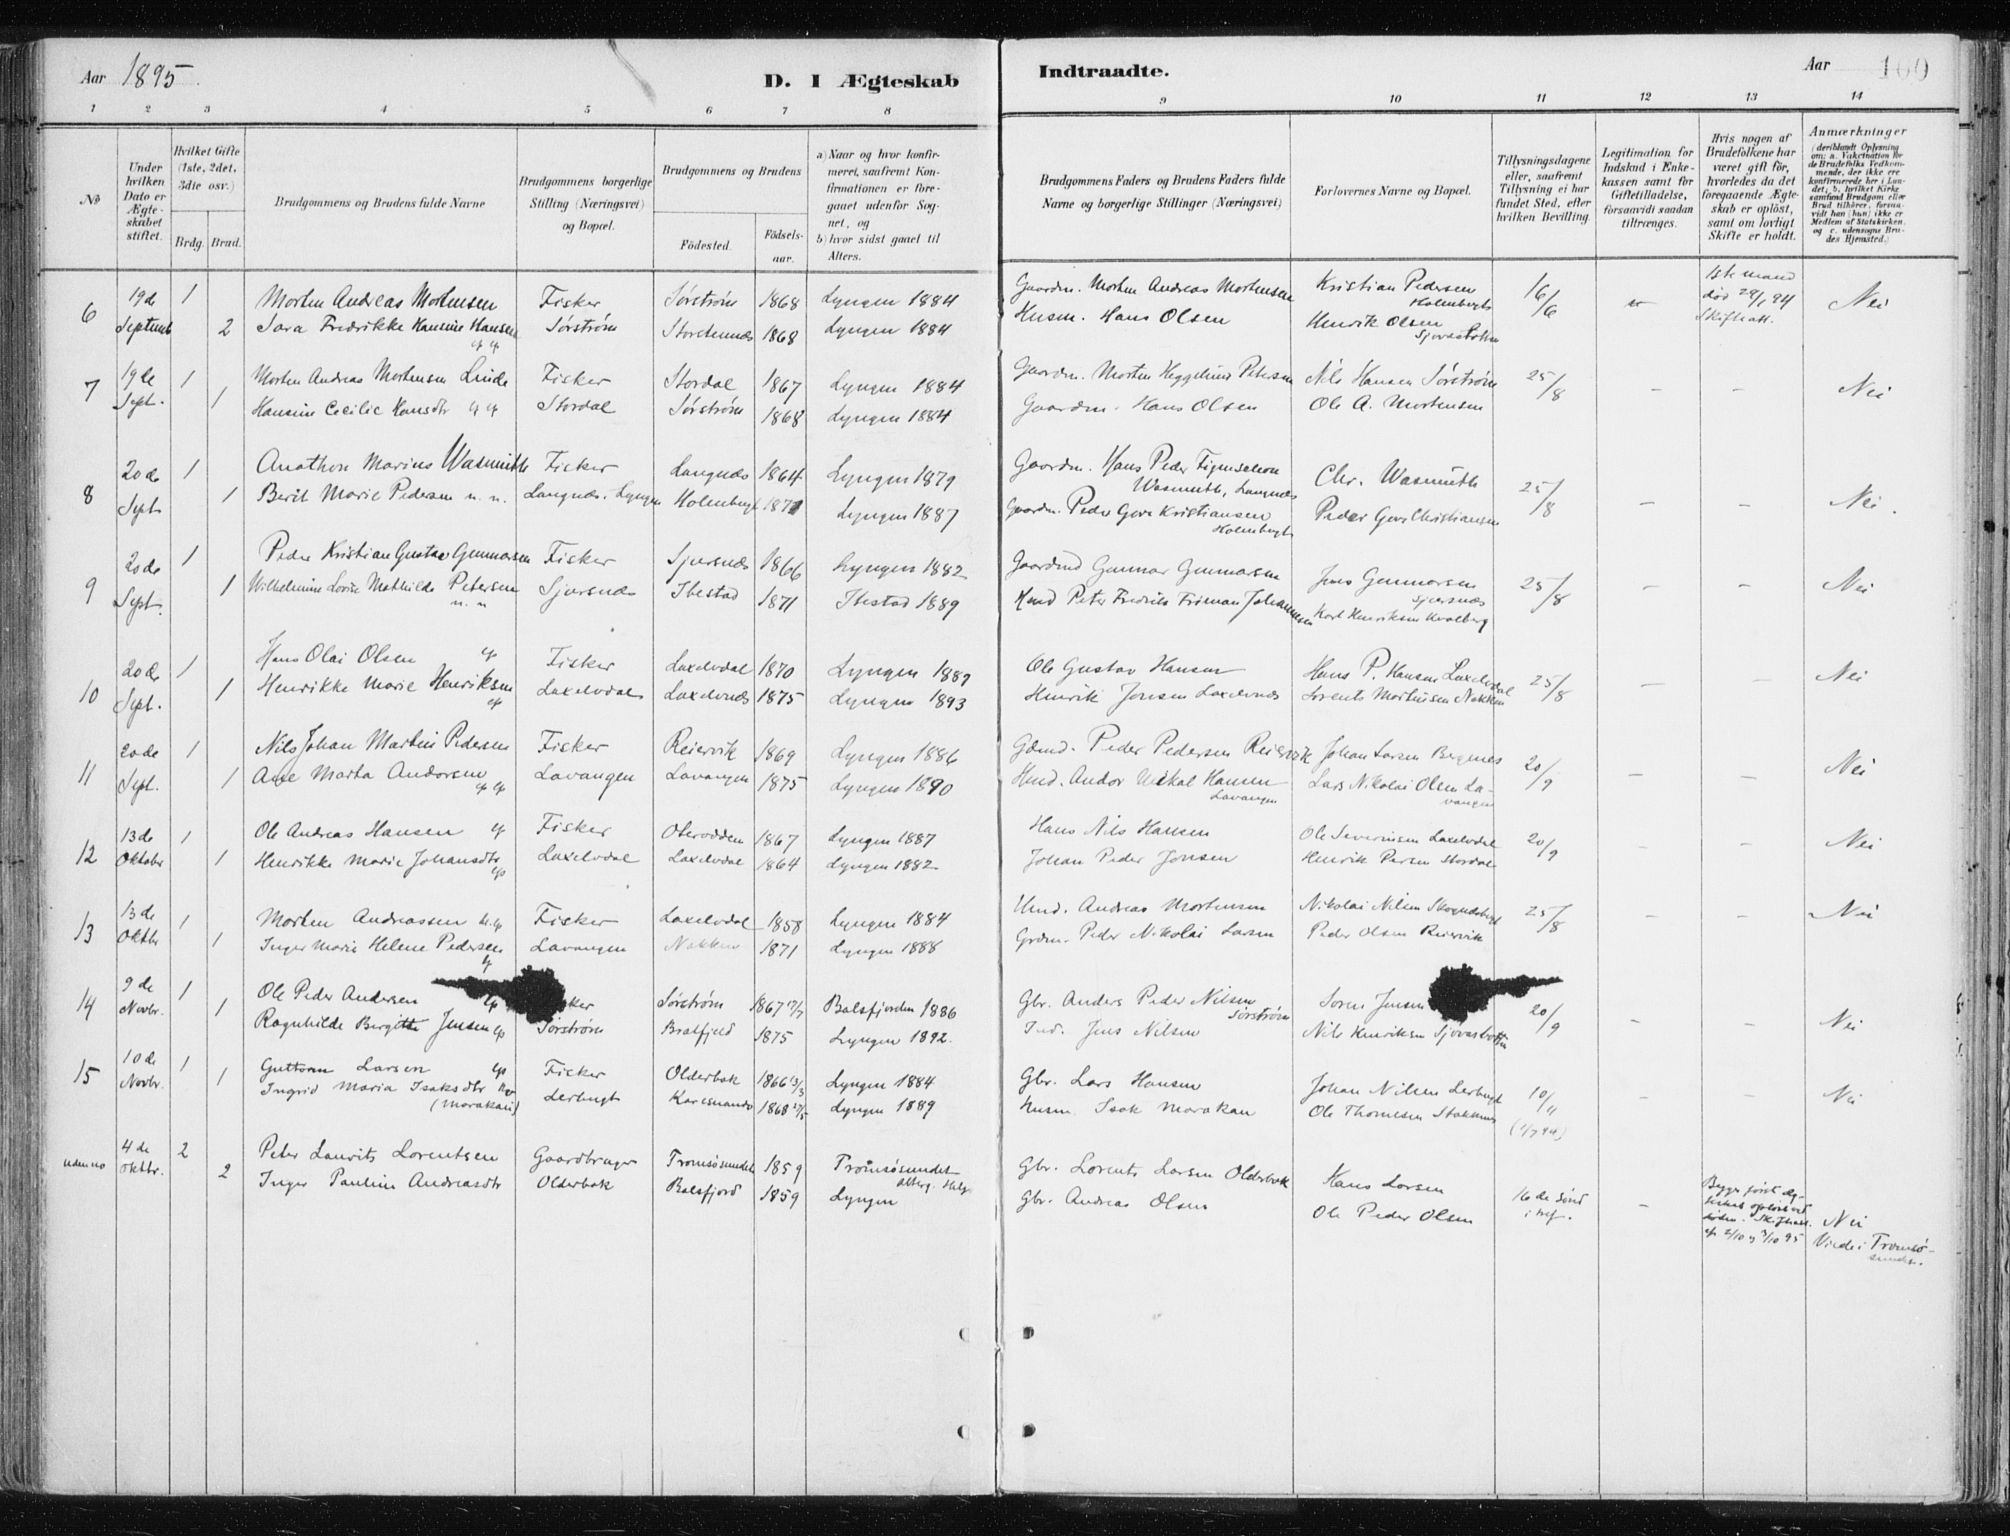 Aar 1895
D. I Ægteskab
Indtraadte.
Aar 100
1 2 3 4 5 6 7 8 9 10 11 12 13 14
No
Under hvilken Dato er Ægteskabet stiftet.
Hvilket Gifte (1ste, 2det, 3die osv.)
Brdg. Brud.
Brudgommens og Brudens fulde Navne
Brudgommens borgerlige Stilling (Næringsvei) og Bopæl.
Brudgommens og Brudens
Födested.
Födselsaar.
a) Naar og hvor konfirmeret, saafremt Konfirmationen er foregaaet udenfor Sognet, og
b) hvor sidst gaaet til Alters.
Brudgommens Faders og Brudens Faders fulde Navne og borgerlige Stillinger (Næringsvei)
Forlovernes Navne og Bopæl.
Tillysningsdagene eller, saafremt Tillysning ei har fundet Sted, efter hvilken Bevilling.
Legitimation for Indskud i Enkekassen samt for Giftetilladelse, forsaavidt saadan tiltrænges.
Hvis nogen af Brudefolkene har været gift för, hvorledes da det foregaaende Ægteskab er oplöst, samt om lovligt Skifte er holdt.
Anmærkninger (deriblandt Oplysning om: a. Vakcination for de Brudefolks Vedkommende, der ikke ere konfirmerede her i Landet; b. hvilket Kirkesamfund Brudgom eller Brud tilhörer, forsaavidt han (hun) ikke er Medlem af Statskirken, og c. udensogns Brudes Hjemsted.)
6 19de 1 Morten Andreas Mortensen Fisker Sørstrøm 1868 Lyngen 1884 Gaardm. Morten Andreas Mortensen Kristian Pedersen Holmbugt 16/6 1ste mand død 29/1 94 Skifteatt. Nei
Septemb 2 Sara Fredrikke Hansine Hansen Sørstrøm Storstennæs 1868 Lyngen 1884 Husm. Hans Olsen Henrik Olsen
7 19de 1 Morten Andreas Mortensen Linde Fisker Stordal 1867 Lyngen 1884 Gaardm. Morten Heggelund Petersen Nils Hansen Sørstrøm 25/8 - - Nei
Sept. 1 Hansine Cecilie Hansdtr Stordal Sørstrøm 1868 Lyngen 1884 Gaardm. Hans Olsen Ole A. Mortensen
8 20de 1 Anathon Marius Wasmuth Fisker Langnæs 1864 Lyngen 1879 Gaardm. Hans Peder Wasmuth, Langnæs Chr. Wasmuth 25/8 - - Nei.
Sept 1 Berit Marie Pedersen Langnæs. Lyngen Holmbugt 1871 Lyngen 1887 Gaardm. Peder Gove Kristiansen Holmbugt Peder Gove Christiansen
9 20de 1 Peder Kristian Gustav Gunnarsen Fisker Sjursnæs 1866 Lyngen 1882 Gaardmd Gunnar Gunnarsen Jens Gunnarsen Sjursnæs 25/8 - - Nei
Sept. 1 Wilhelmine Lovise Mathilde Petersen Sjursnæs Ibestad 1871 Ibestad 1889 Peter Fredrik Johannesen Karl Henriksen Kvalberg
10 20de 1 Hans Olai Olsen Fisker Laxelvdal 1870 Lyngen 1887 Ole Gustav Hansen Hans P. Hansen Laxelvdal 25/8 - - Nei
Sept. 1 Henrikke Marie Henriksen Laxelvdal Laxelvnæs 1875 Lyngen 1893 Henrik Jonsen Laxelvnæs Lorents Mortensen Nakken
11 20de 1 Nils Johan Martin Pedersen Fisker Reiervik 1869 Lyngen 1886 Gdmd. Peder Pedersen Reiervik Johan Larsen Bergenes 20/9 - - Nei
Sept. 1 Ane Marta Andorsen Lavangen Lavangen 1875 Lyngen 1890 Hmd. Andor Mikal Hansen Lavangen Lars Nikolai Olsen Lavangen
12 13de 1 Ole Andreas Hansen Fisker Oterodden 1867 Lyngen 1887 Hans Nils Hansen Ole Severinsen Laxelvdal 20/9 - - Nei
Oktober 1 Henrikke Marie Johansdtr Laxelvdal Laxelvdal 1864 Lyngen 1882 Johan Peder Jonsen Henrik Persen Stordal
13 13de 1 Morten Andreassen Fisker Laxelvdal 1858 Lyngen 1884 Hmd. Andreas Mortensen Nikolai Nilsen 25/8 - - Nei
Oktbr 1 Inger Marie Helene Pedersen Lavangen Nakken 1871 Lyngen 1888 Grdm. Peder Nikolai Larsen Peder Olsen Reiervik
14 9de 1 Ole Peder Andersen Sørstrøm 1867 17/7 Balsfjorden 1886 Gbr. Anders Peder Nilsen Sørstrøm Soren Jensen 20/9 - - Nei
Novbr. 1 Ragnhilde Birgitte Jensen Sørstrøm Bratfjeld 1875 Lyngen 1892. Ind. Jens Nilsen Nils Henriksen Sjøvasbotten
15 10de 1 Guttorm Larsen Fisker Olderbak 1866 13/3 Lyngen 1884 Gbr. Lars Hansen Johan Nilsen Lerbugt 10/11 - - Nei
Novbr. 1 Ingrid Maria Isaksdtr (Marakan) Lerbugt Karesuando 1868 27/5 Lyngen 1889 Husm. Isak Marakan Ole Thomesen Stokknes (1/7 94)
uden no 4de 2 Peter Lauvits Lorentsen Gaardbruger Tromsøsundet 1859 Tromsøsundet Gbr. Lorents Larsen Olderbak Hans Larsen 16de Sønd i tref. -
Oktbr. 2 Inger Pauline Andreasdtr Olderbak Balsfjord 1859 Lyngen Gbr. Andreas Olsen Ole Peder Olsen Nei
Viede i Tromsøsundet.